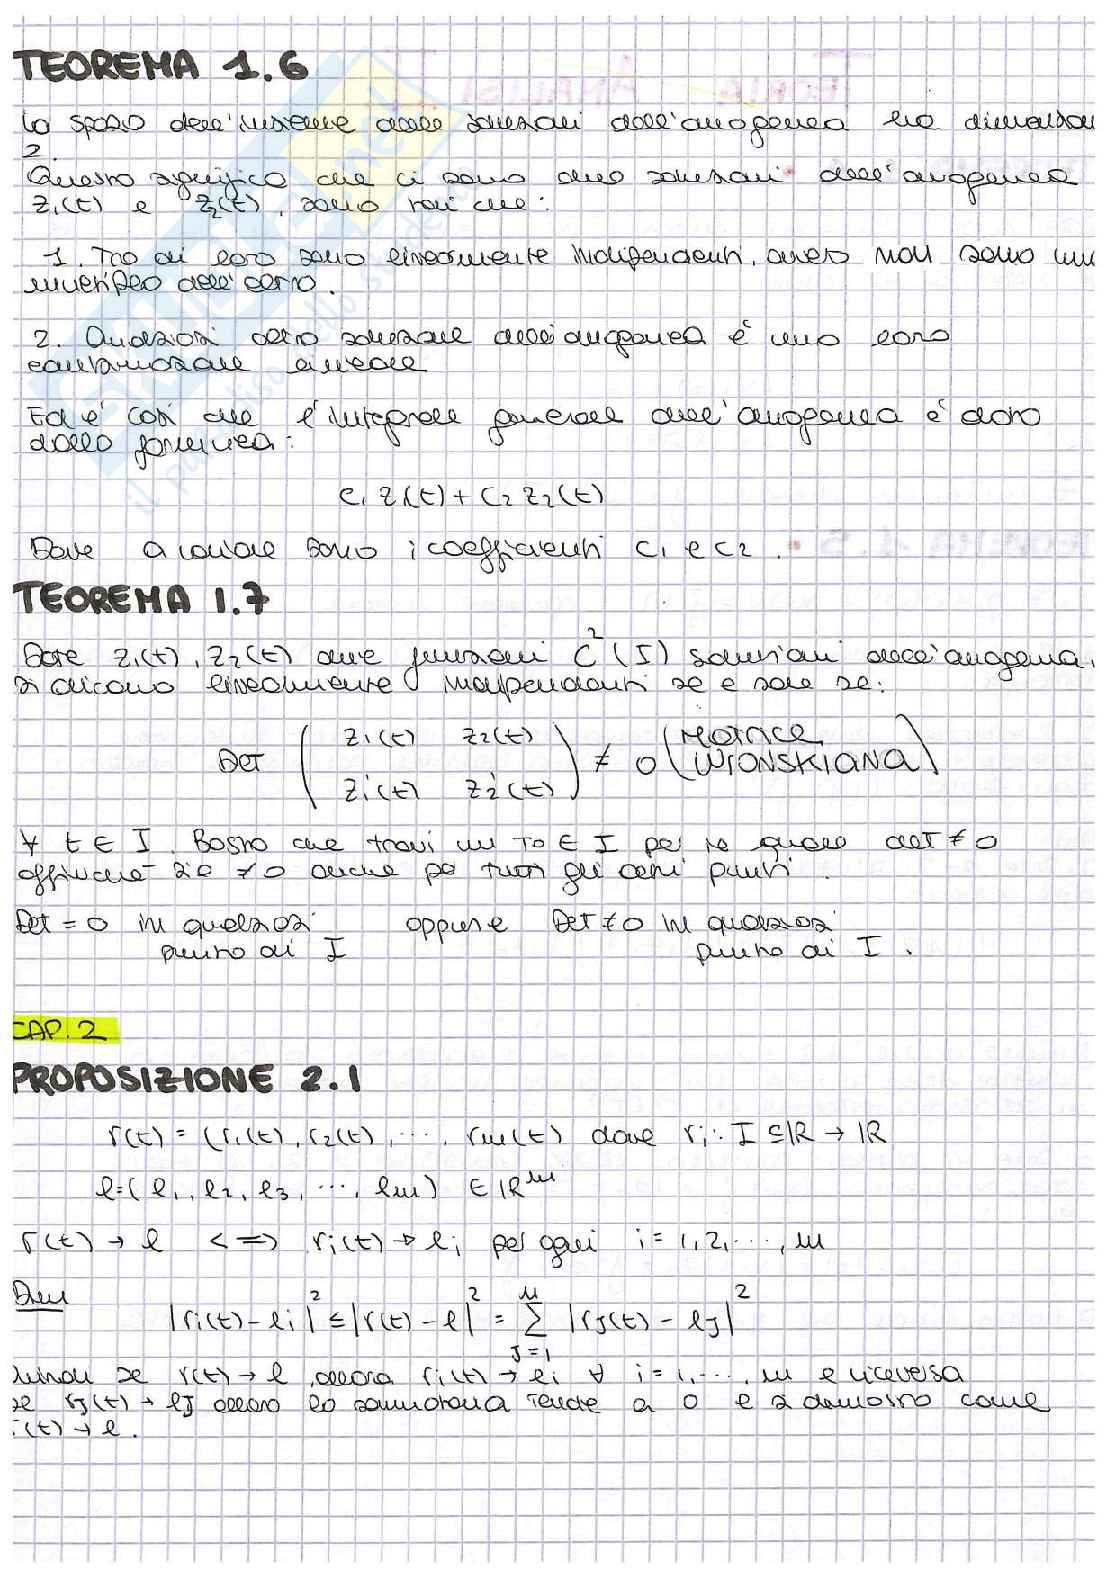 TEOREMA 1.6
Lo spazio dell'insieme delle soluzioni dell'omogenea ha dimension
2.
Questo significa che ci sono due soluzioni dell'omogenea
z₁(t) e z₂(t), sono tali che:
1. Tra di loro sono linearmente indipendenti, ovvero non sono un
multiplo dell'altro.
2. Qualsiasi altra soluzione dell'omogenea è una loro
combinazione lineare
Ed è così che l'integrale generale dell'omogenea è dato
dalla formula:
c₁ z₁(t) + c₂ z₂(t)
Dove a variare sono i coefficienti c₁ e c₂.
TEOREMA 1.7
Date z₁(t), z₂(t) due funzioni C²(I) soluzioni dell'omogenea,
si dicono linearmente indipendenti se e solo se:
z₁(t) z₂(t)
DET ≠ 0 (MATRICE WRONSKIANA)
z₁'(t) z₂'(t)
∀ t ∈ I. Basta che trovi un T₀ ∈ I per la quale det ≠ 0
affinché sia ≠ 0 anche per tutti gli altri punti.
Det = 0 in qualsiasi oppure Det ≠ 0 in qualsiasi
punto di I punto di I.
CAP. 2
PROPOSIZIONE 2.1
r(t) = (r₁(t), r₂(t), ..., rm(t) dove ri: I ⊆ ℝ → ℝ
l = (l₁, l₂, l₃, ..., lm) ∈ ℝᵐ
r(t) → l <=> ri(t) → li per ogni i = 1, 2, ..., m
Dim
|ri(t) - li|² ≤ |r(t) - l|² = ∑ᵐJ=1 |rJ(t) - lJ|²
uindi se r(t) → l, allora ri(t) → li ∀ i = 1, ..., m e viceversa
se rJ(t) → lJ allora la sommatoria tende a 0 e si dimostra come
r(t) → l.